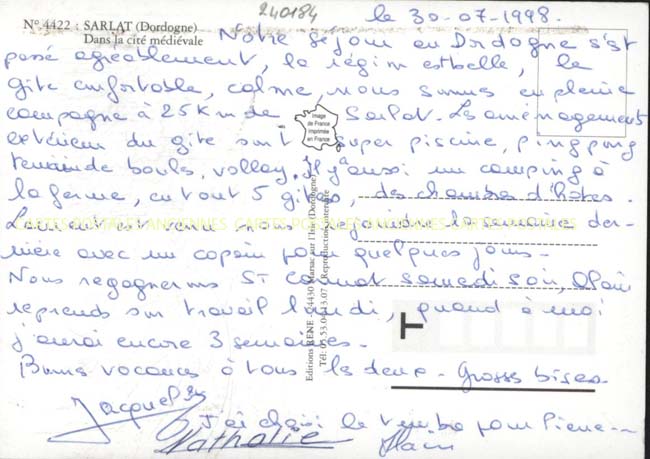 240184
N° 4422 : SARLAT (Dordogne)
Dans la cité médiévale
le 30-07-1998.
Notre séjour en Dordogne s'est
passé agréablement, la région est belle, le
gîte confortable, calme, nous sommes en pleine
campagne à 25 Km de Sarlat. Les aménagements
extérieur du gîte sont super piscine, ping pong
terrain de boules, volley. Il y a aussi un camping à
la ferme, en tout 5 gîtes, des chambres d'hôtes.
Laurent est venu nous rejoindre la semaine der-
nière avec un copain pour quelques jours -
Nous regagnerons St samedi soir, Alain
reprends son travail lundi, quand à moi
j'aurai encore 3 semaines.
Bonnes vacances à tous les deux - Grosses bises
J'ai choisi le timbre pour Pierre
Nathalie
Alain
Image
de France
Imprimée
en France
Editions RENE - 24430 Marsac sur l'Isle (Dordogne)
Tél. 05.53.04.13.07 - Reproduction interdite
CARTES POSTALES ANCIENNES CARTES POSTALES ANCIENNES